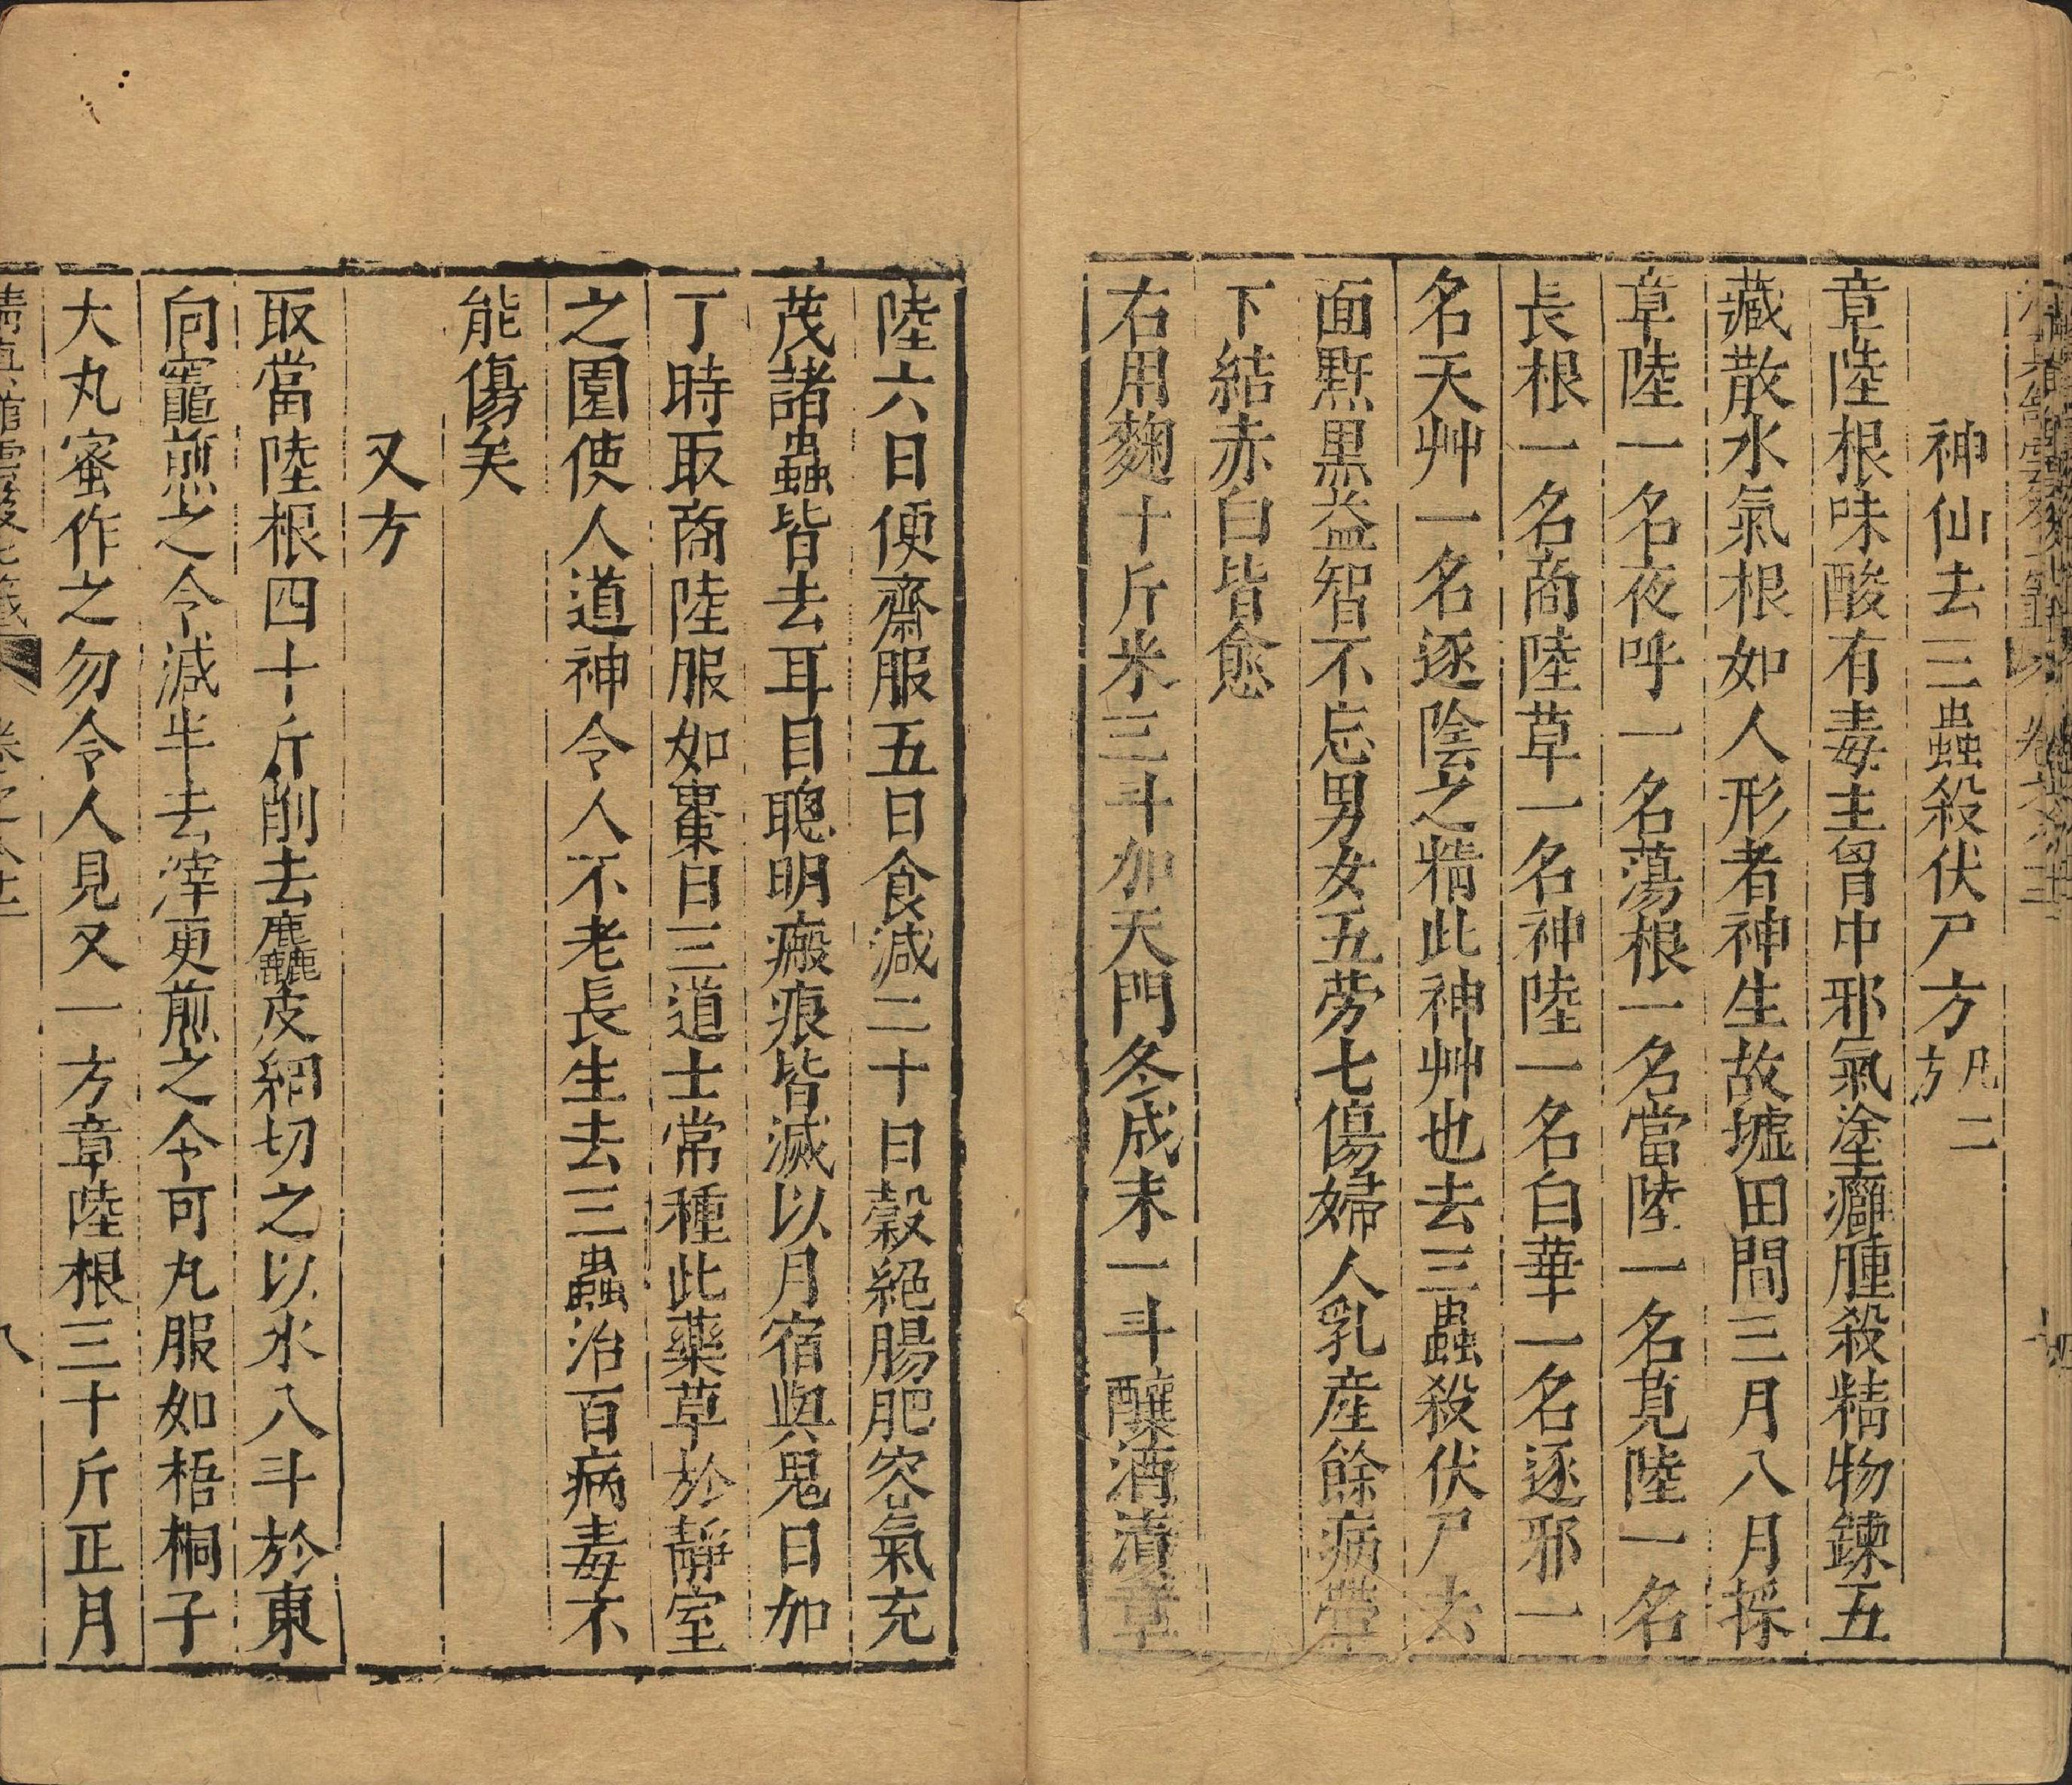 神仙去三蟲殺伏尸方 凡二方
章陸根味酸有毒主胷中邪氣塗癰腫殺精物鍊五
藏散水氣根如人形者神生故墟田間三月八月採
章陸一名夜呼一名蕩根一名當陸一名莧陸一名
長根一名商陸草一名神陸一名白華一名逐邪一
名天艸一名逐陰之精此神艸也去三蟲殺伏尸去
面䵟黒益智不忘男女五劳七傷婦人乳産餘病帶
下結赤白皆愈
右用麴十斤米三斗加天門冬成末一斗釀酒漬章
陸六日便齋服五日食減二十日穀絕腸肥容氣充
茂諸蟲皆去耳目聰明瘢痕皆滅以月宿與鬼日加
丁時取商陸服如棗日三道士常種此藥草於靜室
之園使人道神令人不老長生去三蟲治百病毒不
能傷矣
又方
取當陸根四十斤削去麤皮細切之以水八斗於東
向竈煎之令減半去滓更煎之令可丸服如梧桐子
大丸蜜作之勿令人見又一方章陸根三十斤正月